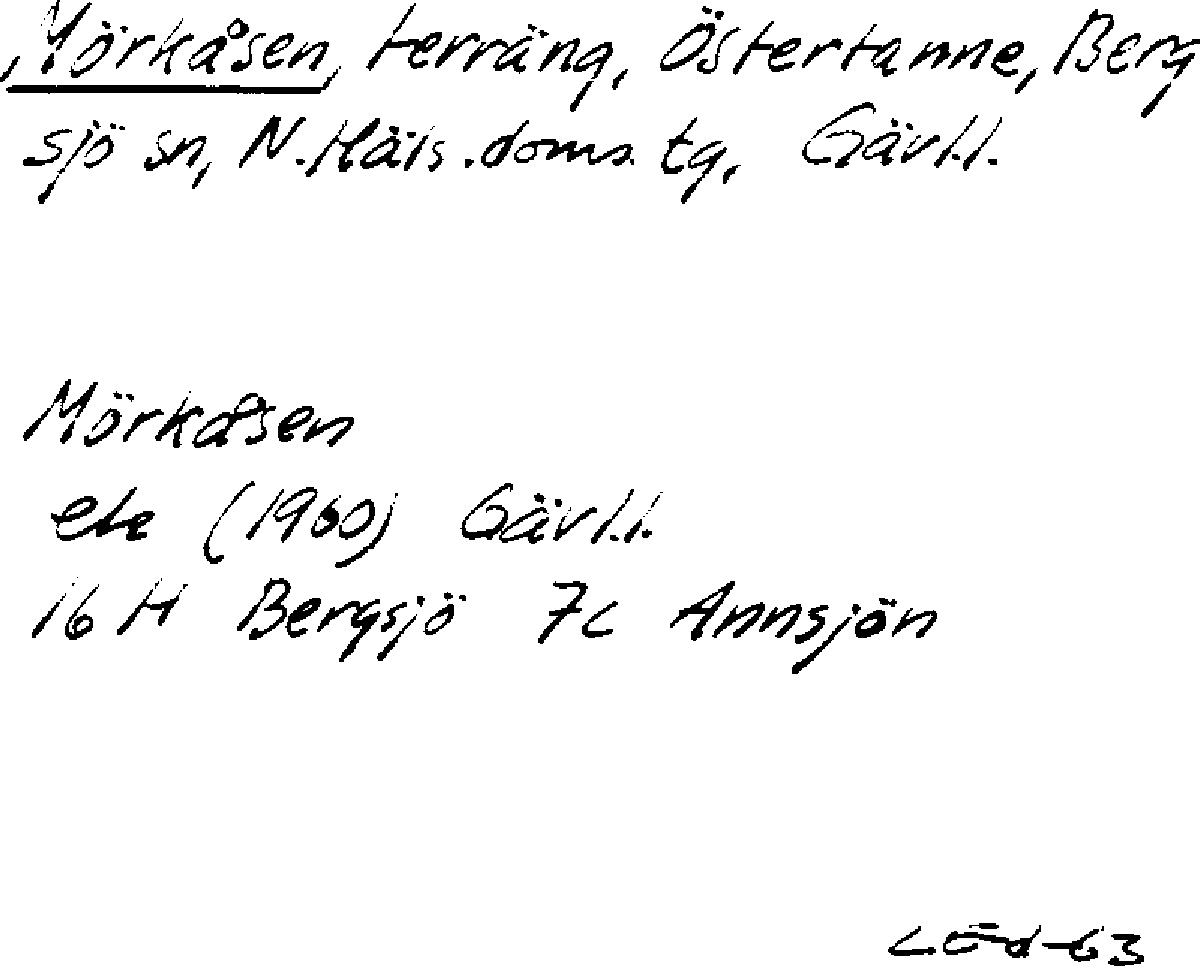 Mörkåsen, terräng, Östertanne, Berg
sjö sn, N. Häls. doms. tg, Gävl.l.
Mörkåsen
ek (1960) Gävl.l.
16 H Bergsjö 7c Annsjön